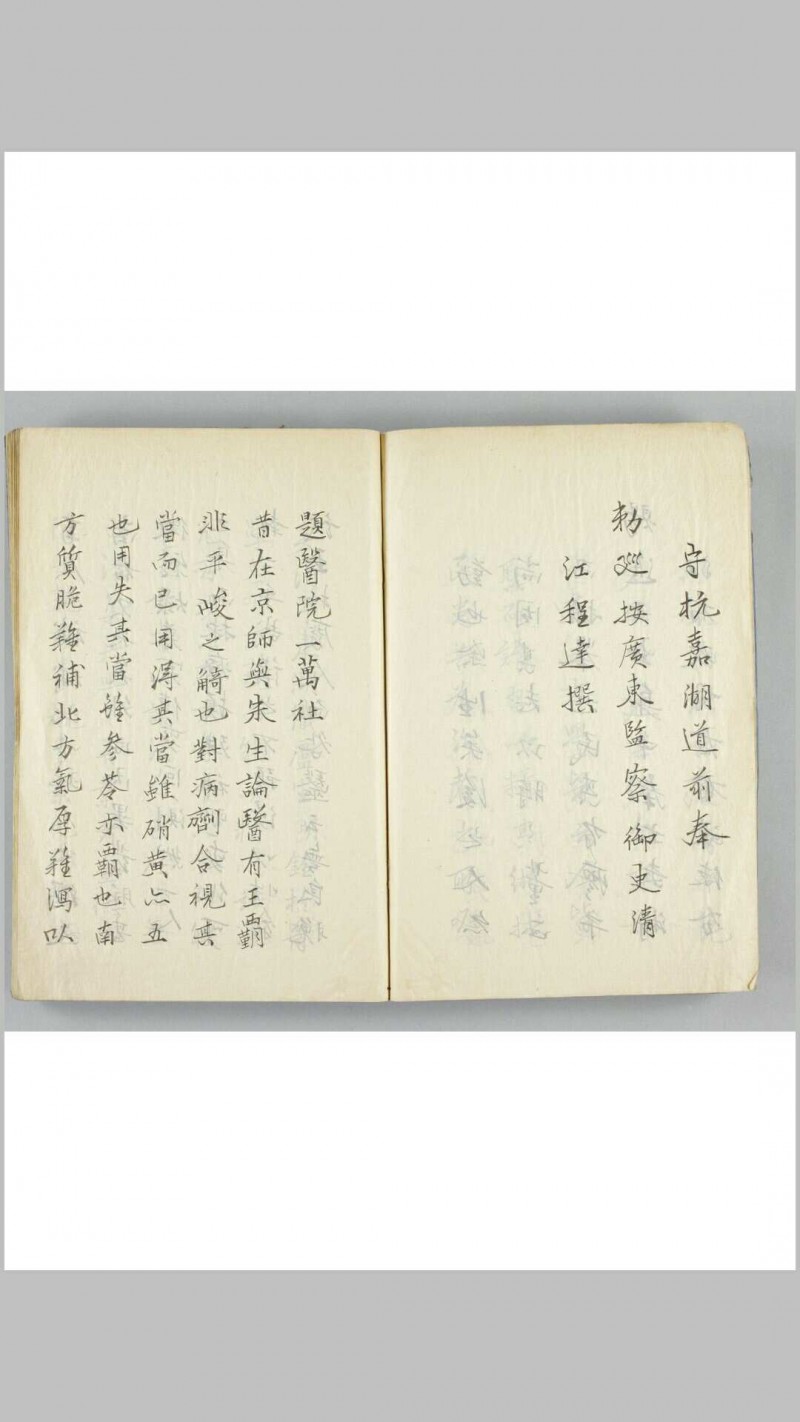 守杭嘉湖道前奉
勅巡按廣東監察御史清
江程達撰
題醫院一萬社
昔在京師與朱生論醫有王覇
非平峻之觭也對病劑合視其
當而已用淂其當雖硝黄亦五
也用失其當雖參苓亦覇也南
方質脆難補北方氣厚難瀉以